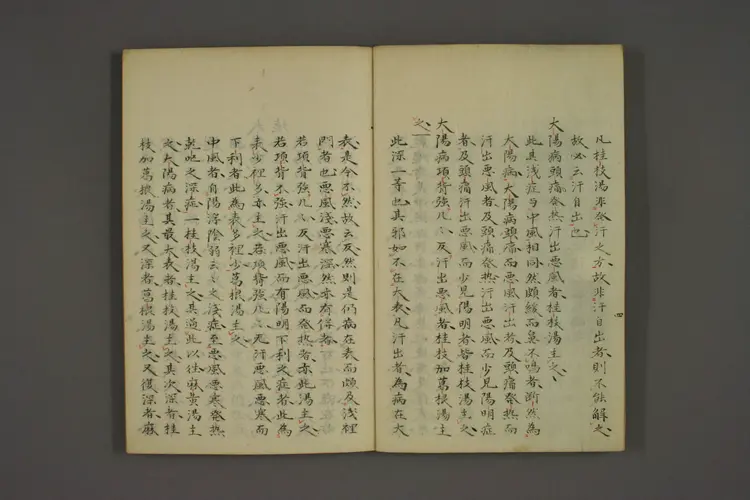 凡桂枝湯非發汗之方故非汗自出者則不能解之
故必云汗自出也
太陽病頭痛發熱汗出惡風者桂枝湯主之
此其淺症与中風相同然頗緩而鼻不鳴者漸然為
太陽病太陽病頭痛而汗出者及頭痛發熱而
汗出惡風者及頭痛發熱汗出惡風而少見陽明症
者及頭痛汗出惡風而少見陽明者皆桂枝湯主之
太陽病項背強几〻反汗出惡風者桂枝加葛根湯主
之
此深一等也其邪如不在大表凡汗出者為病在大
表是令不然故云反然則是仍病在表而頗及淺裡
門者也惡風淺惡寒深然亦有併者
若項背強几〻反汗出惡風而發熱者亦此湯主之
若項背不強汗出惡風而有陽明下利之症者此為
表少裡多亦主之若項背強几〻无汗惡風惡寒而
下利者此為表多裡少葛根湯主之
中風者自陽浮陰弱云〻之淺症至惡風惡寒發熱
之深症一桂枝湯主之其過此以往麻黃湯主
之太陽病者其最大表者桂枝湯主之其次深者桂
枝加葛根湯主之又深者葛根湯主之又復深者麻
四